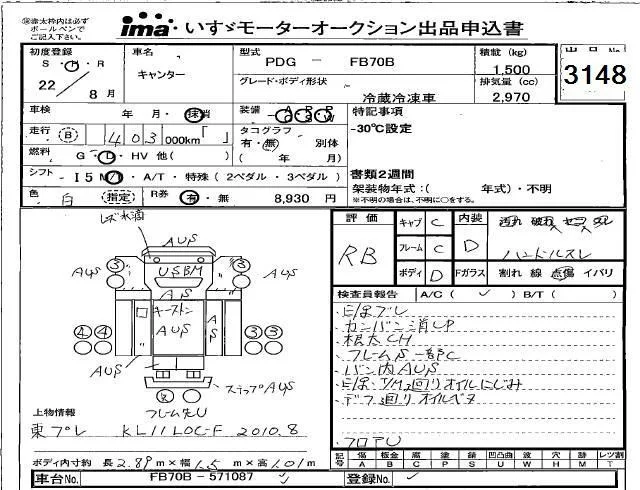 ※赤太枠内は必ず
ボールペンで
ご記入下さい。
ima いすゞモーターオークション出品申込書
出品No
3148
初度登録
S・H・R
22 / 8月
車名
キャンター
型式
PDG － FB70B
積載 (kg)
1,500
グレード・ボディ形状
冷蔵冷凍車
排気量 (cc)
2,970
車検 年・月・抹消
装備
特記事項
-30℃設定
走行 B 403 000km「 」
タコグラフ
有・無 別体
( 年 月)
燃料 G・D・HV 他( )
シフト - I5 M・A/T・特殊(2ペダル・3ペダル)
書類2週間
架装物年式:( 年式)・不明
※不明の場合は、不明に○をする。
色 白 (指定) R券 有・無 8,930 円
評価 RB
キャブ C
フレーム C
ボディ D
内装 D
汚れ 破れ
ハンドルスレ
Fガラス 割れ 線 点傷 イバリ
レズ水滴
AUS
③ ③
AUS AUS
USBM
AS
キーストン
AUS AS
④④ ③③
AUS
ステップAUS
フレーム先U
検査員報告 A/C( ✓ ) B/T( )
E/Gブレ
カンバン消しP
根太CH
フレームS一部C
バン内AUS
E/G、T/M廻りオイルにじみ
デフ廻りオイルベタ
フロアU
上物情報
東プレ KL11LOC-F 2010.8
ボディ内寸約 長2.89m×幅1.5m×高1.01m
記号 傷 A 板金 B 腐 C 塗 P 錆 S 凹凸曲 U 波 W 穴 H 跡 M レンズ割 T
車台No. FB70B-571087
登録No.